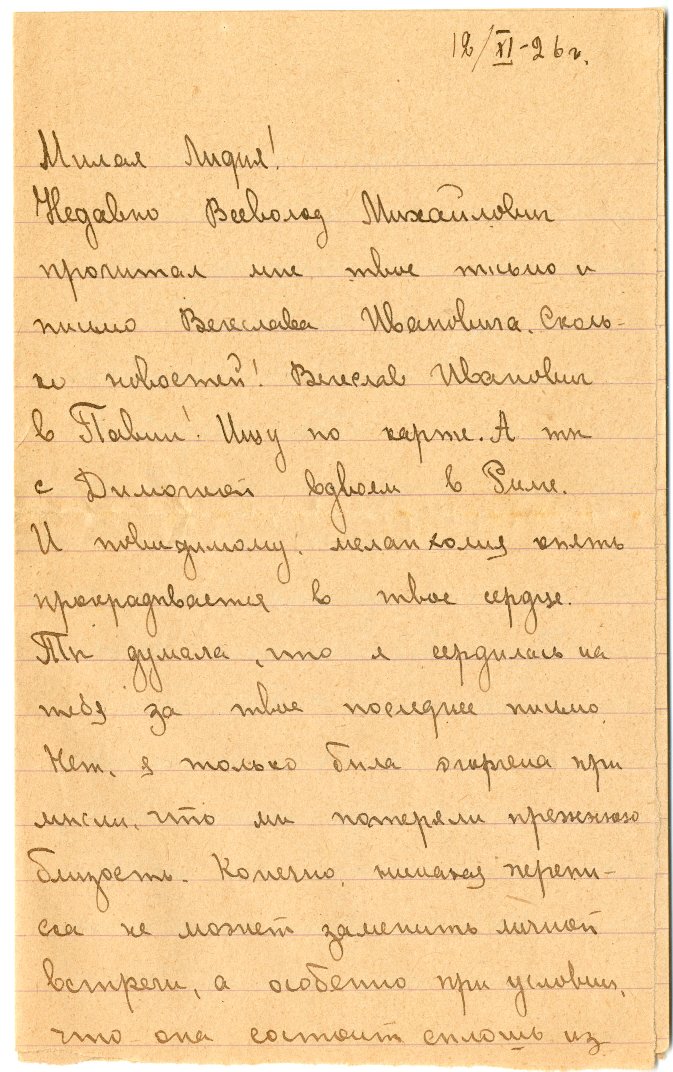 12/XI-26 г.
Милая Лидия!
Недавно Всеволод Михайлович
прочитал мне твое письмо и
письмо Вячеслава Ивановича. Сколь-
ко новостей! Вячеслав Иванович
в Павии! Ищу по карте. А ты
с Димочкой вдвоем в Риме.
И повидимому, меланхолия опять
прокрадывается в твое сердце.
Ты думала, что я сердилась на
тебя за твое последнее письмо.
Нет, я только была огорчена при
мысли, что мы потеряли прежнюю
близость. Конечно, никакая перепи-
ска не может заменить личной
встречи, а особенно при условии,
что она состоит сплошь из